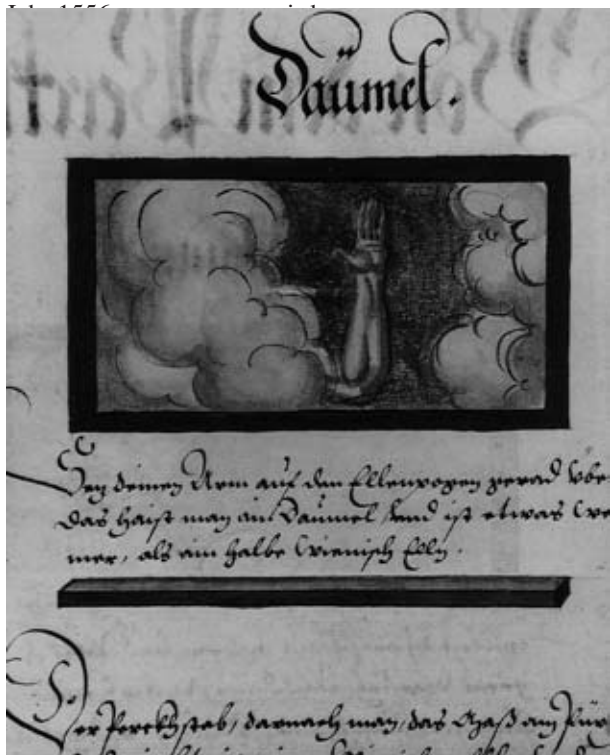 Däumel.
Sez deinen Arm auf den Ellenpogen gerad vbe
das haist man ain Däumel, vnd ist etwas we
mer, als ain halbe Wienisch Elln.
Der Perckhstab, darnach man, das Maß am für